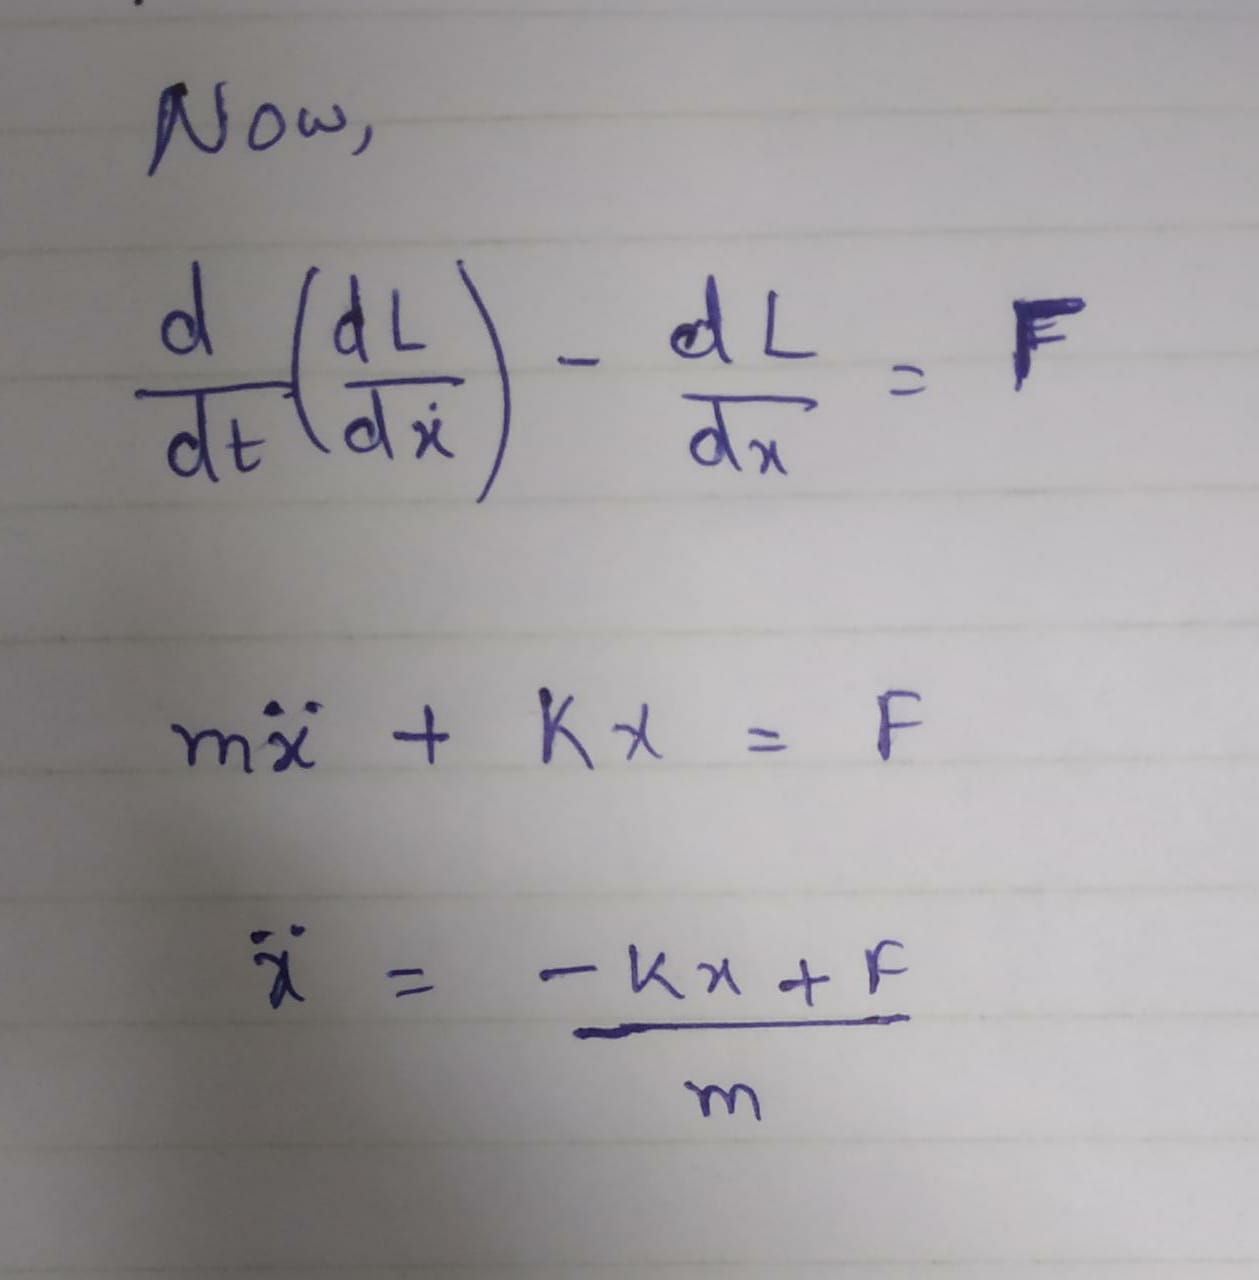 Now,
d/dt (dL/dẋ) - dL/dx = F
mẍ + Kx = F
ẍ = -Kx + F / m